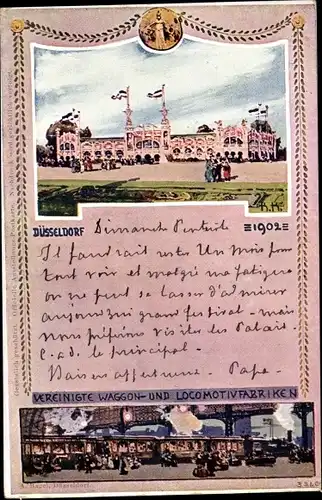 DÜSSELDORF Dimanche Pentecôte ≡1902≡
Il faudrait rester Un mois pour
tout voir et malgré ma fatigue
on ne peut se lasser d'admirer
aujourd'hui grand festival - mais
nous préférons visiter les Palais.
c.a.d. le principal.
Baisers affectueux. Papa.
VEREINIGTE WAGGON- UND LOCOMOTIVFABRIKEN
Düsseldorf.